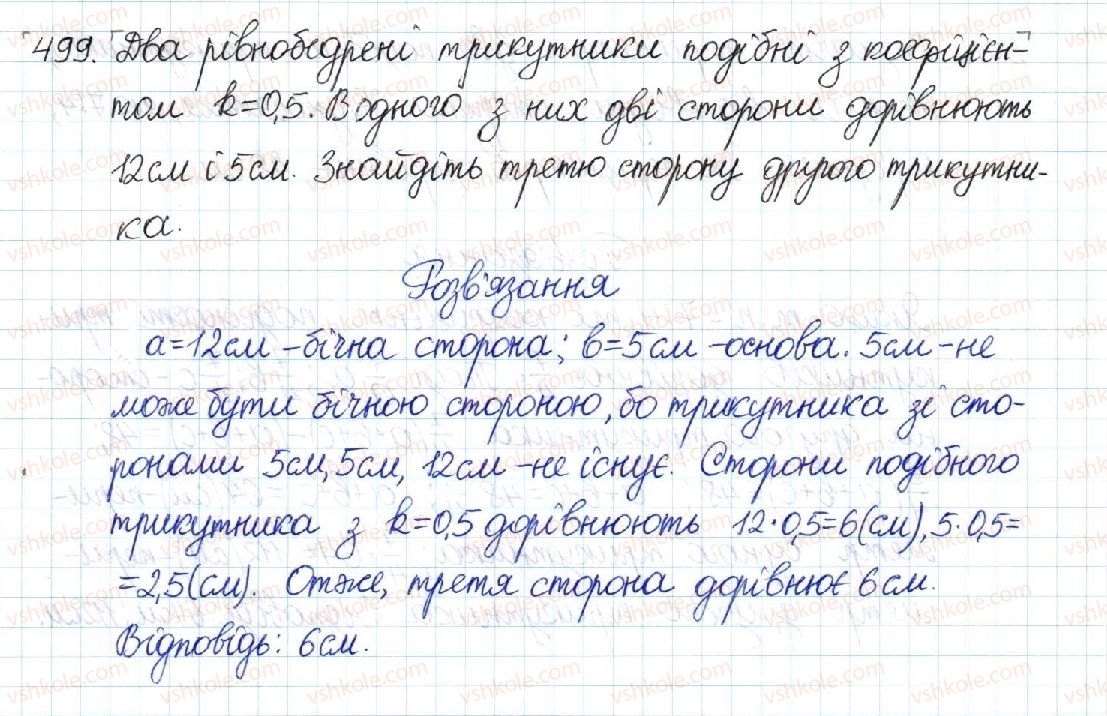 499. Два рівнобедрені трикутники подібні з коефіцієн-
том k=0,5. В одного з них дві сторони дорівнюють
12см і 5см. Знайдіть третю сторону другого трикутни-
ка.
Розв'язання
a=12см - бічна сторона; b=5см - основа. 5см - не
може бути бічною стороною, бо трикутника зі сто-
ронами 5см, 5см, 12см - не існує. Сторони подібного
трикутника з k=0,5 дорівнюють 12·0,5=6(см), 5·0,5=
=2,5(см). Отже, третя сторона дорівнює 6см.
Відповідь: 6см.